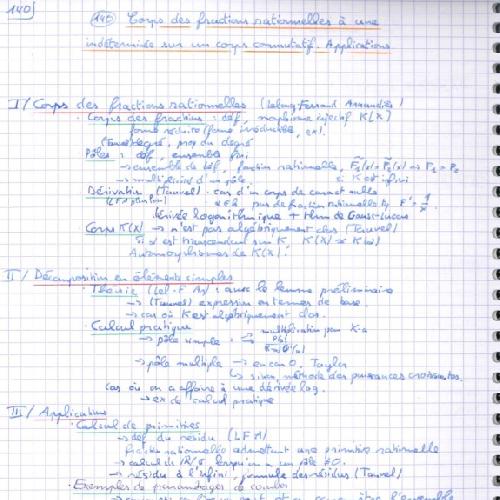 140)
140 Corps des fractions rationnelles à une
indéterminée sur un corps commutatif. Applications
I / Corps des fractions rationnelles (Lelong Ferrand Arnaudiès)
· Corps des fractions : déf, morphisme injectif K(X)
forme réduite / forme irréductible, ex.
(Tauvel) degré, prop du degré
Pôles : déf, ensemble fini
→ ensemble de déf, fonction rationnelle, F̃1(x) = F̃2(x) ⇒ F1 = F2
→ multiplicité d'un pôle si K est infini
Dérivation (Tauvel) - cas d'un corps de caract nulle
pas de fraction rationnelle tq F' = 1/X
dérivée logarithmique + thm de Gauss-Lucas
Corps K(X) → n'est pas algébriquement clos (Tauvel)
si α est transcendant sur K, K(X) ≃ K(α)
Automorphismes de K(X).
II / Décomposition en éléments simples
· Théorie (Lel-F Ar) : avec le lemme préliminaire
→ (Tauvel) expression en termes de base
→ cas où K est algébriquement clos.
· Calcul pratique
→ pôle simple → multiplication par X-a
→ pôle multiple → en 0. Taylor
↳ sinon méthode des puissances croissantes.
cas où on a affaire à une dérivée log.
→ ex de calcul pratique
III / Applications
· Calcul de primitives
→ déf du résidu (LFA)
fraction rationnelle admettant une primitive rationnelle
→ calcul de lorsqu'on a un pôle ≠ 0.
→ résidu à l'infini, formule des résidus (Tauvel)
· Exemples de paramétrages de courbes